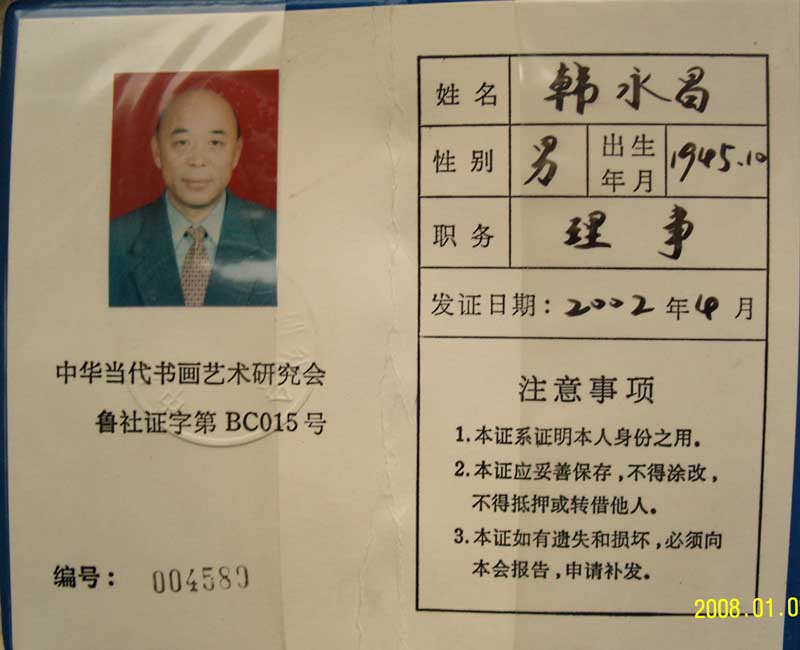 中华当代书画艺术研究会
鲁社证字第 BC015 号
编号： 004589
姓名 韩永昌
性别 男 出生年月 1945.10
职务 理事
发证日期：2002年4月
注意事项
1.本证系证明本人身份之用。
2.本证应妥善保存，不得涂改，
不得抵押或转借他人。
3.本证如有遗失和损坏，必须向
本会报告，申请补发。
2008.01.0